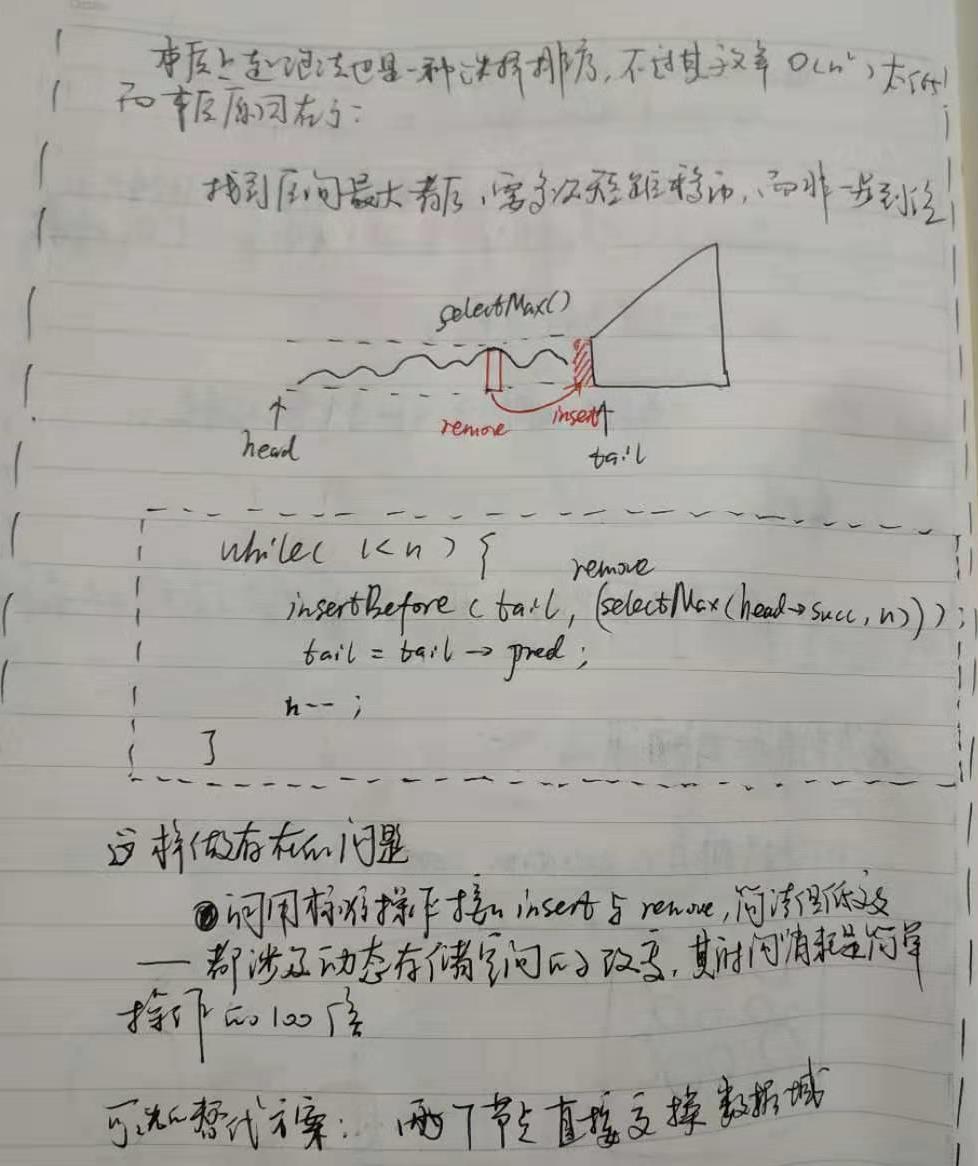 本质上起泡法也是一种选择排序,不过其效率O(n²)太低
而本质原因在于:
找到区间最大者后,需多次短距移动,而非一步到位
selectMax()
remove insert
head tail
while( 1<n ) {
remove
insertBefore ( tail, (selectMax(head→succ, n)) );
tail = tail → pred ;
n-- ;
}
这样做存在的问题
调用标准操作接口 insert 与 remove,简洁但低效
— 都涉及动态存储空间的改变,其时间消耗是简单
操作的100倍
可选的替代方案: 两个节点直接交换数据域